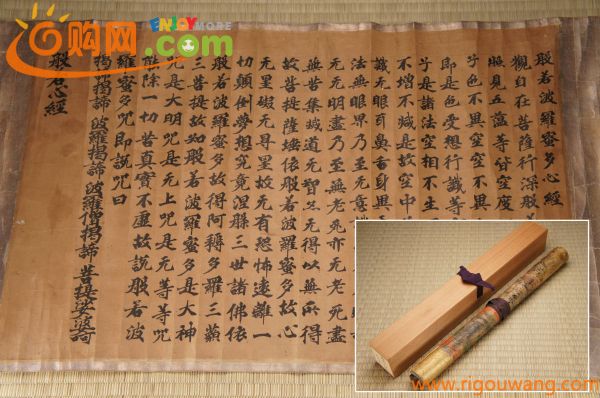 般若波羅蜜多心經
觀自在菩薩行深般
照見五蘊等皆空度
子色不異空空不異
即是色受想行識等
子是諸法空相不生
不增不減是故空中
識无眼耳鼻舌身意
法無眼界乃至无意
无无明盡乃至無老死亦无老死盡
無苦集滅道无智亦无得以無所得
故菩提薩埵依般若波羅蜜多故心
无罣礙无罣礙故无有恐怖遠離一
切顛倒夢想究竟涅槃三世諸佛依
般若波羅蜜多故得阿耨多羅三藐
三菩提故知般若波羅蜜多是大神
咒是大明咒是无上咒是无等等咒
能除一切苦真實不虛故說般若波
羅蜜多咒即說咒曰
揭揭諦 波羅揭諦 波羅僧揭諦 菩提娑婆訶
般若心經
ENJOY MORE
购网.com
www.rigouwang.com